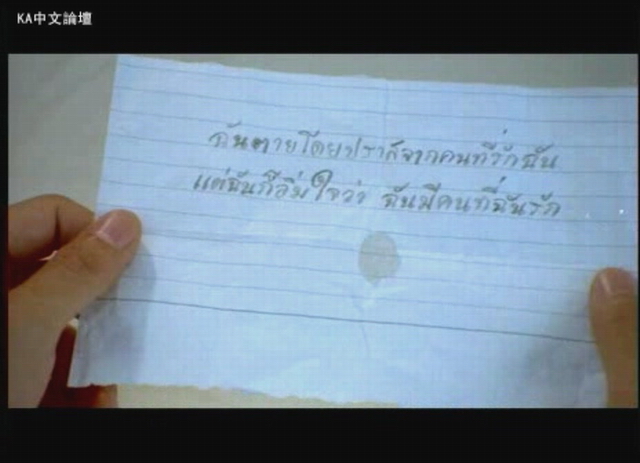 KA中文論壇
ฉันตายโดยปราศจากคนที่รักฉัน
แต่ฉันก็อิ่มใจว่า ฉันมีคนที่ฉันรัก